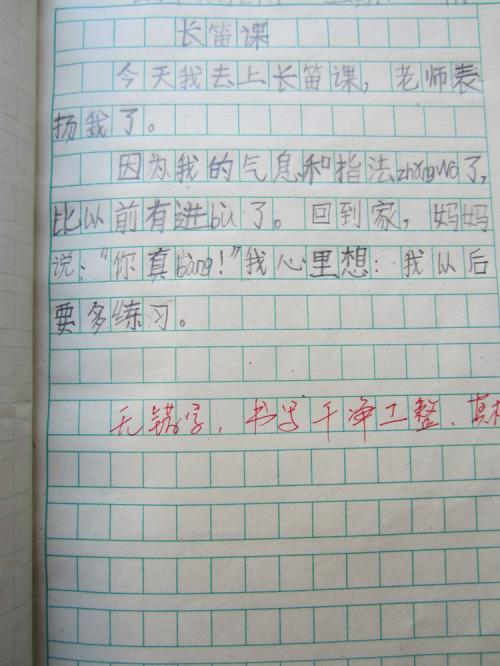 长笛课
今天我去上长笛课，老师表
扬我了。
因为我的气息和指法zhǎngwò了，
比以前有进bù了。回到家，妈妈
说：“你真bàng！”我心里想：我以后
要多练习。
无错字，书写干净工整、真棒